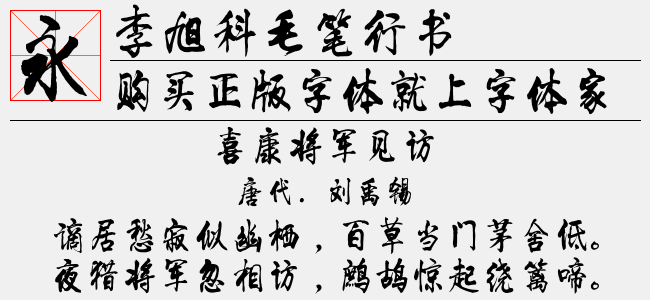 永
李旭科毛笔行书
购买正版字体就上字体家
喜康将军见访
唐代．刘禹锡
谪居愁寂似幽栖，百草当门茅舍低。
夜猎将军忽相访，鹧鸪惊起绕篱啼。